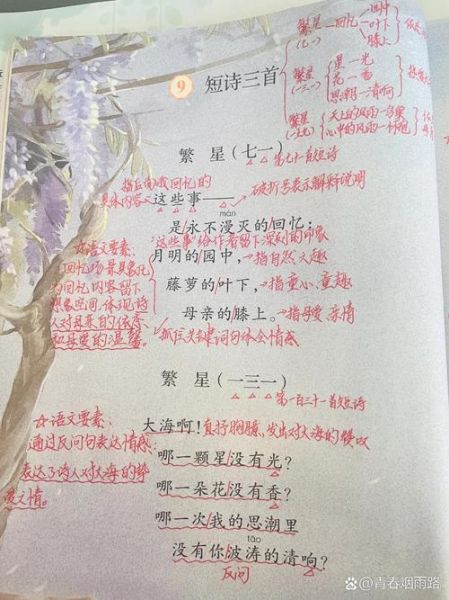 9 短诗三首
繁星(七一)
回忆
园中
叶下
膝上
繁星(一三一)
星—光
花—香
思潮—清响
繁星
天上的风雨—鸟巢
心中的风雨—
繁 星(七一)
第七十一首短诗
指后面我回忆的
具体内容
这些事——
破折号表示解释说明
màn
是永不漫灭的回忆:
"这些事"给作者留下深刻的印象
月明的园中,
指自然之趣
藤萝的叶下,
指童心、童趣
母亲的膝上。
指母爱、亲情
抓住关键词句体会情感
☆语文要素:
回忆场景具象化
为回忆内容留下
想象空间,体现诗
人对母亲的依恋
和母爱的温馨。
繁 星(一三一)
第一百三十一首短诗
大海啊!
直抒胸臆,发出对大海的赞叹
☆语文要素:
通过反问句表达情感:
表达了诗人对大海的挚
爱之情。
哪一颗星没有光?
哪一朵花没有香?
哪一次我的思潮里
tāo
没有你波涛的清响?
反问
@青春烟雨路